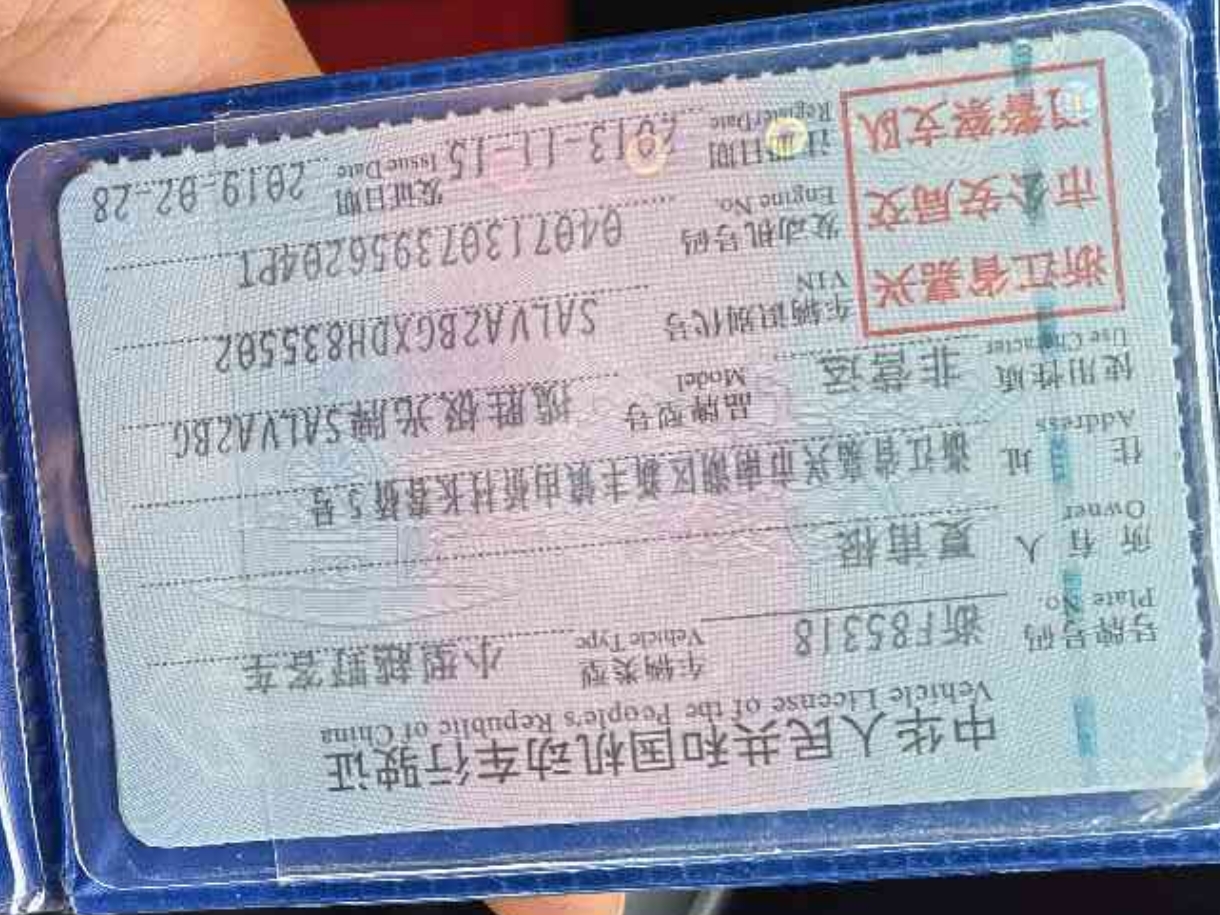 中华人民共和国机动车行驶证
Vehicle License of the People's Republic of China
号牌号码 浙F85318 车辆类型 小型越野客车
Plate No. Vehicle Type
所有人 夏甫根
Owner
住址 浙江省嘉兴市南湖区新丰镇由桥村长春桥5号
Address
使用性质 非营运 品牌型号 揽胜极光牌SALVA2BG
Use Character Model
浙江省嘉兴
市公安局交
通警察支队
车辆识别代号 SALVA2BGXDH835502
VIN
发动机号码 040713073956204PT
Engine No.
注册日期 2013-11-15 发证日期 2019-02-28
Register Date Issue Date